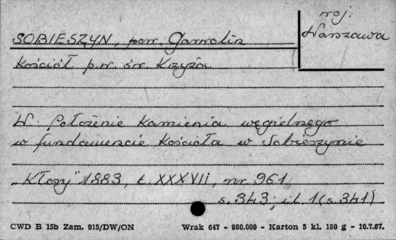 woj:
Warszawa
SOBIESZYN, pow. Garwolin
Kościół p.w. św. Krzyża
W: Położenie kamienia węgielnego
w fundamencie Kościoła w Sobieszynie
„Kłosy" 1883, t. XXXVII, nr 961,
s. 343; il. 1 (s. 341)
CWD B 15b Zam. 915/DW/ON
Wrak 647 - 980.000 - Karton 5 kl. 180 g - 10.7.67.